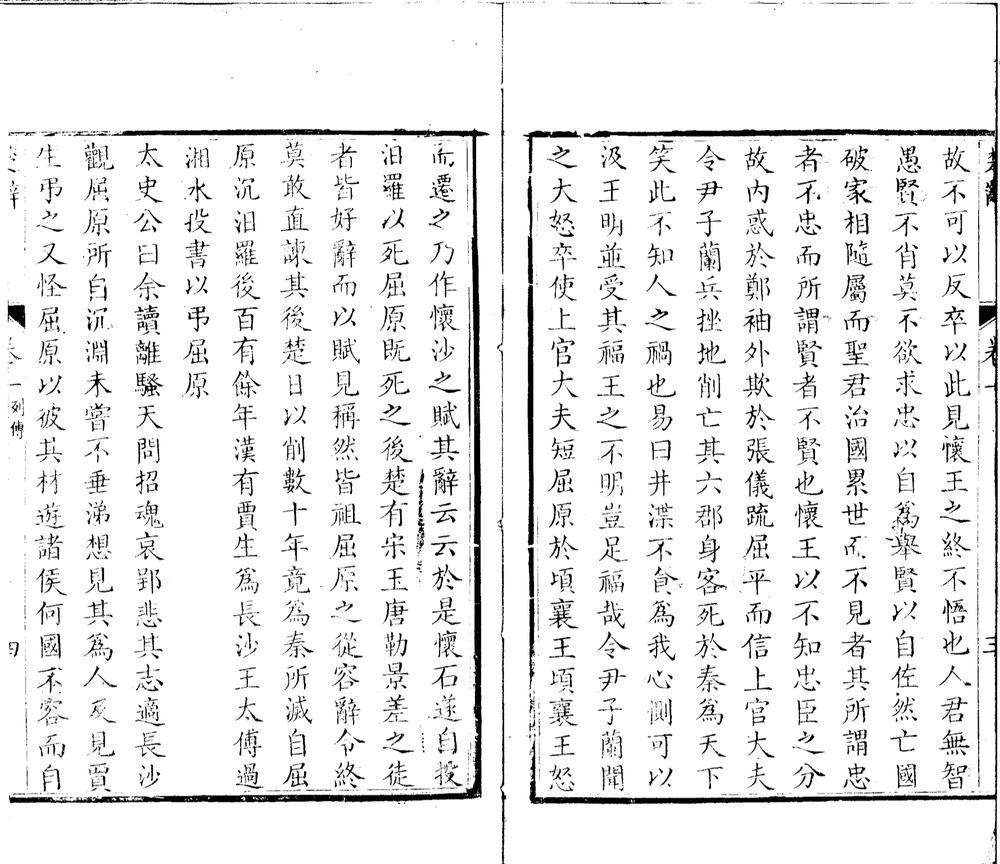 楚辭 卷一 三
故不可以反卒以此見懷王之終不悟也人君無智
愚賢不肖莫不欲求忠以自爲舉賢以自佐然亡國
破家相隨屬而聖君治國累世而不見者其所謂忠
者不忠而所謂賢者不賢也懷王以不知忠臣之分
故內惑於鄭袖外欺於張儀疏屈平而信上官大夫
令尹子蘭兵挫地削亡其六郡身客死於秦爲天下
笑此不知人之禍也易曰井渫不食為我心惻可以
汲王明並受其福王之不明豈足福哉令尹子蘭聞
之大怒卒使上官大夫短屈原於頃襄王頃襄王怒
而遷之乃作懷沙之賦其辭云云於是懷石遂自投
汨羅以死屈原既死之後楚有宋玉唐勒景差之徒
者皆好辭而以賦見稱然皆祖屈原之從容辭令終
莫敢直諫其後楚日以削數十年竟為秦所滅自屈
原沉汨羅後百有餘年漢有賈生爲長沙王太傅過
湘水投書以弔屈原
太史公曰余讀離騷天問招魂哀郢悲其志適長沙
觀屈原所自沉淵未嘗不垂涕想見其爲人及見賈
生弔之又怪屈原以彼其材遊諸侯何國不容而自
楚辭 卷一 列傳 四